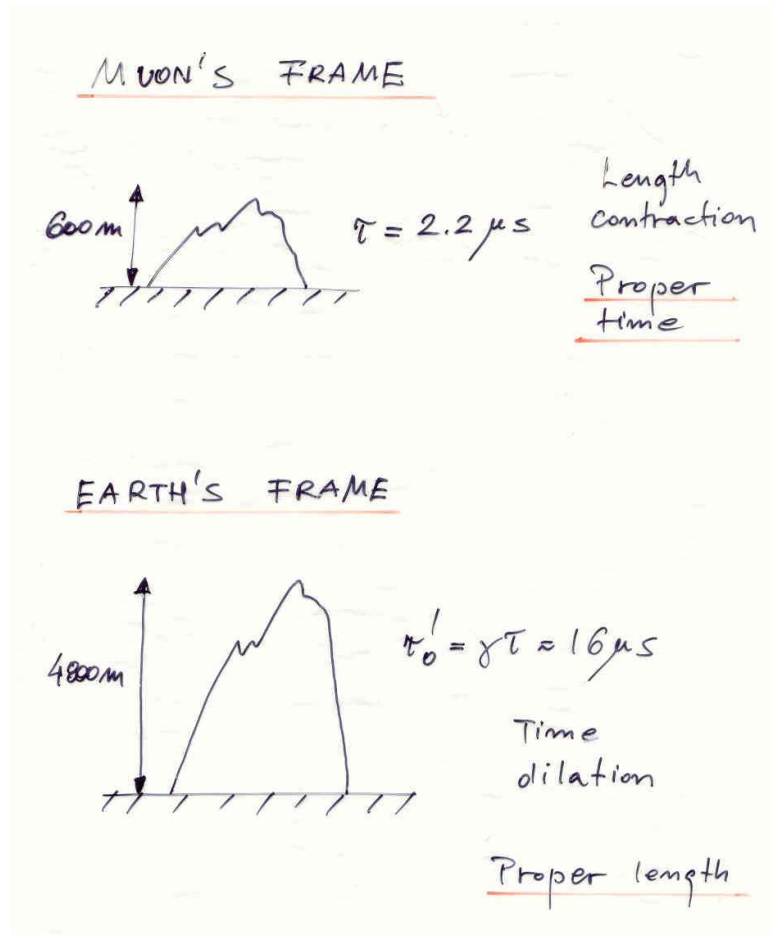 MUON'S FRAME
600m
τ = 2.2 μs
Length
contraction
Proper
time
EARTH'S FRAME
4800m
τ₀' = γτ ≈ 16μs
Time
dilation
Proper length